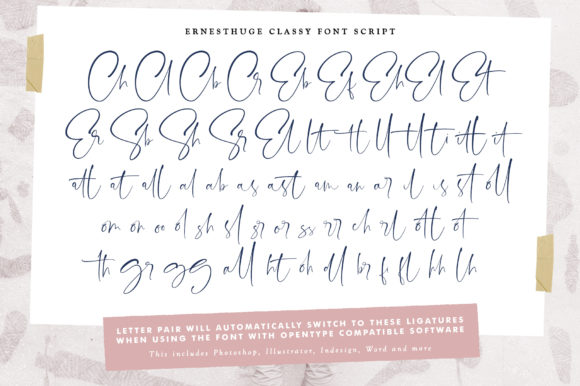 ERNESTHUGE CLASSY FONT SCRIPT
Ch Cl Cb Cr Eb Ef Eh El Et
Er Sb Sh Sr El lt tt ll tl ti itt it
att at all al ab as ast am an ar il is st oll
om on oo ol sh sl sr or ss rr ch rl ott ot
th gr gg all ht oh dl br fi fl hh lh
LETTER PAIR WILL AUTOMATICALLY SWITCH TO THESE LIGATURES
WHEN USING THE FONT WITH OPENTYPE COMPATIBLE SOFTWARE
This includes Photoshop, Illustrator, Indesign, Word and more